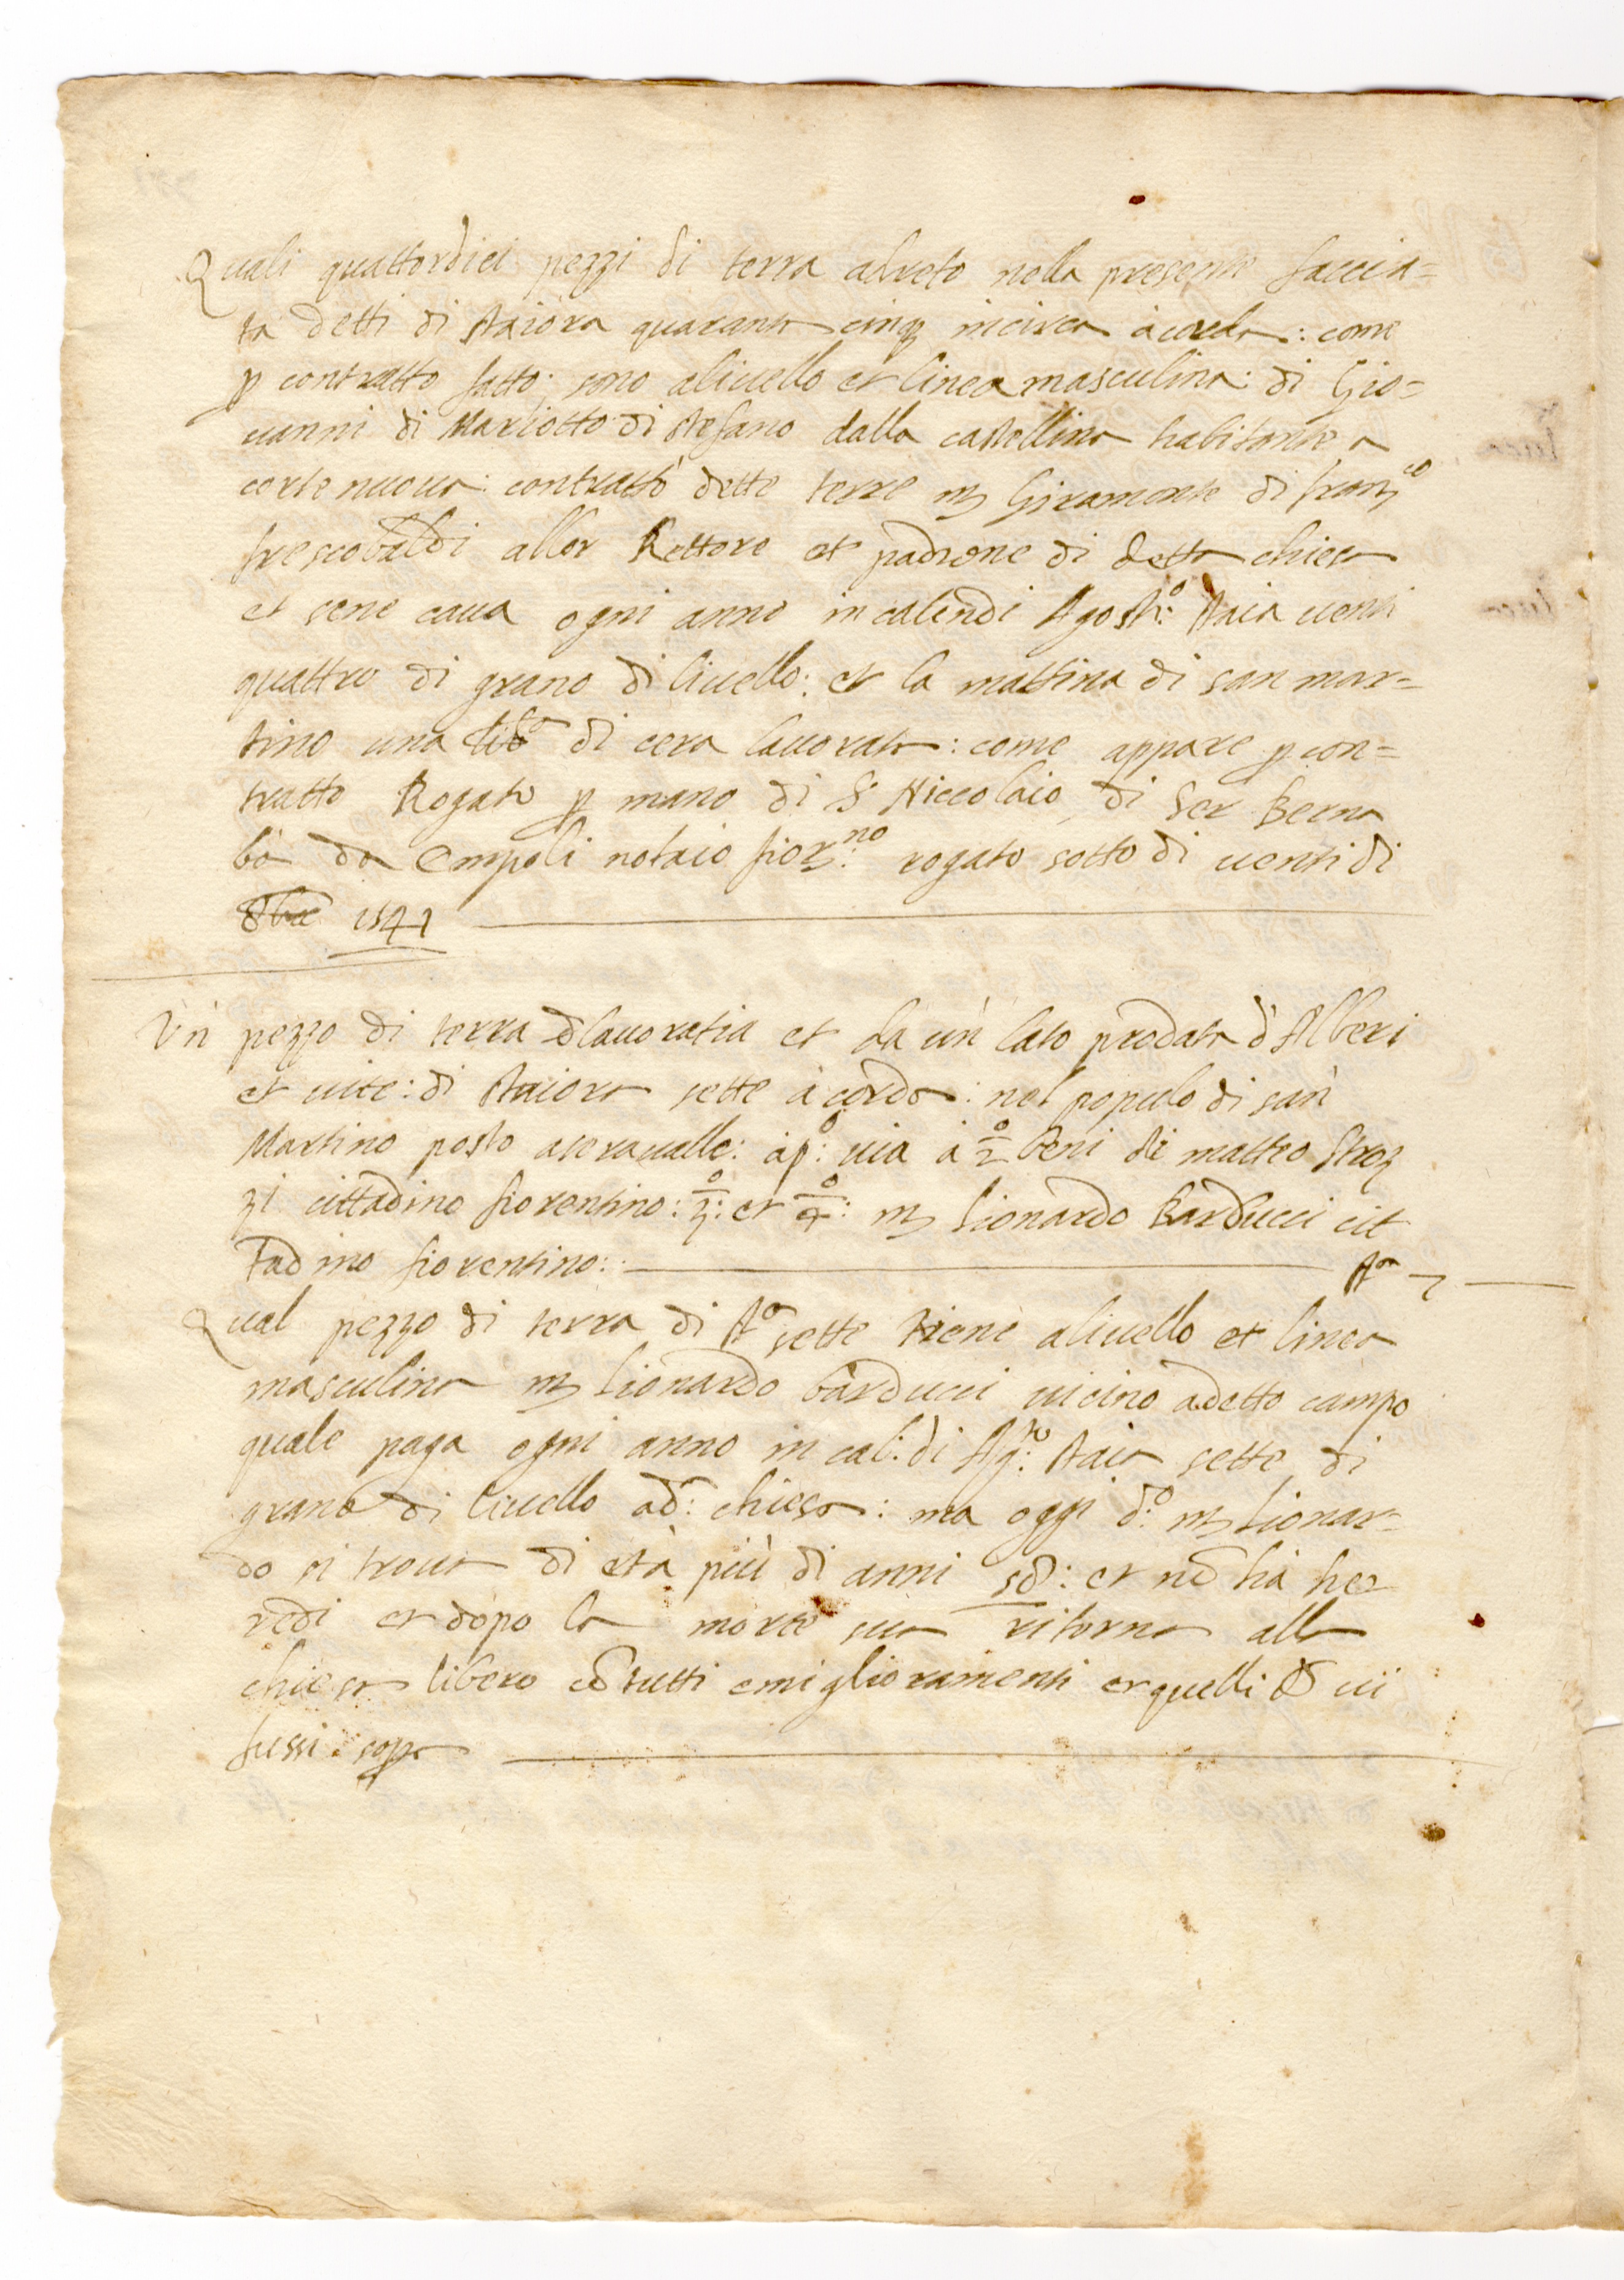 Quali quattordici pezzi di terra adreto nella presente faccia=
ta detti di staiora quaranta cinq incirca à corda: come
p contratto fatto: sono aliuello et linea masculina: di Gio=
uanni di Mariotto di stefano dalla castellina habitante a
corte nuoua: contrattò dette terre m Giramonte di franco
frescobaldi allor Rettore et padrone di detta chiesa
et sene caua ogni anno in calendi Agosto: staia uenti
quattro di grano di liuello: et la mattina di san mar=
tino una liba di cera lauorata: come appare p con=
tratto Rogato p mano di S Niccolaio di Ser Berna
ba da Empoli notaio fiorno: rogato sotto di uenti di
8bre 1541
Un pezzo di terra lauoratia et da un lato prodata d'Alberi
et uite: di staiora sette à corda: nel popolo di san
Martino posto a ceraualle: à po: uia à 2o beni di matteo stroz
zi cittadino fiorentino: 3o: et 4o: m Lionardo Barducci cit
tadino fiorentino: sta 7
Qual pezzo di terra di sta sette tiene aliuello et linea
masculina m Lionardo barducci uicino adetto campo
quale paga ogni anno in cal: di Agto: staia sette di
grano di liuello ad: chiesa: ma oggi do: m Lionar=
do si troua di età più di anni et nō hà he=
redi et dopo la morte sua ritorna alla
chiesa libero cō tutti e miglioramenti et quelli ui
fussi sopra